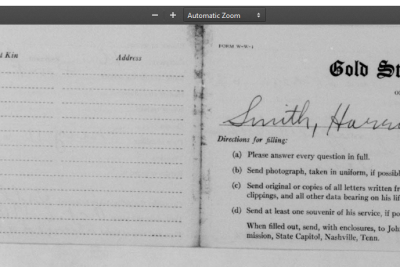 Automatic Zoom
Kin
Address
FORM W-W-1
Gold
Smith,
Directions for filing:
(a) Please answer every question in full.
(b) Send photograph, taken in uniform, if
(c) Send original or copies of all letters written
clippings, and all other data bearing on his
(d) Send at least one souvenir of his service, if
When filled out, send, with enclosures, to
mission, State Capitol, Nashville, Tenn.